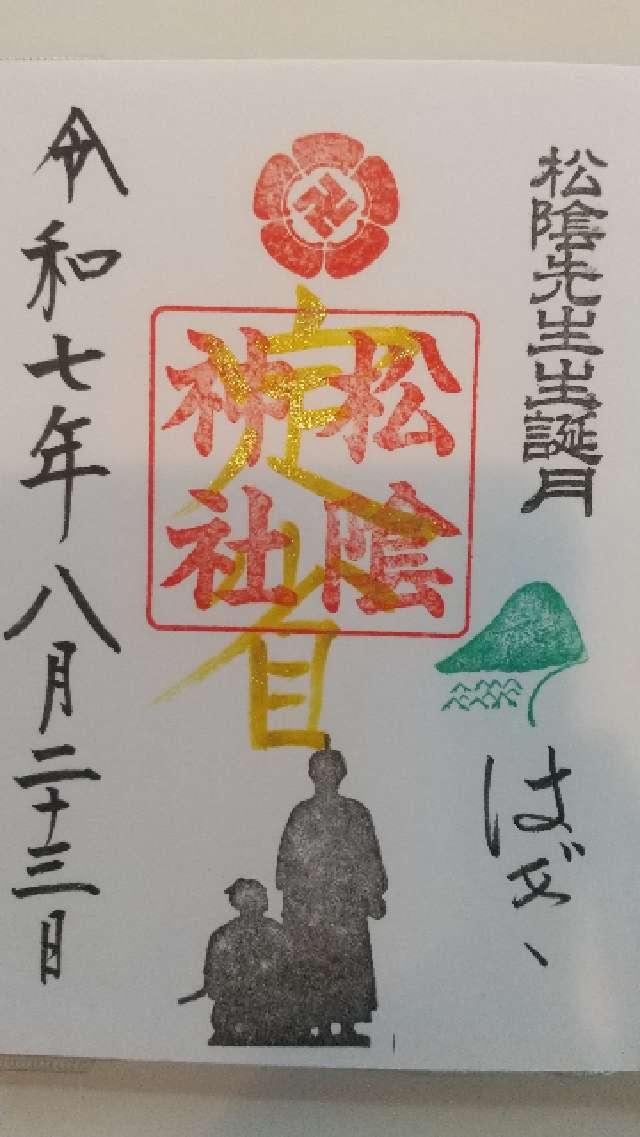 松陰先生生誕月
はぎ、
松陰
神社
定省
令和七年八月二十三日